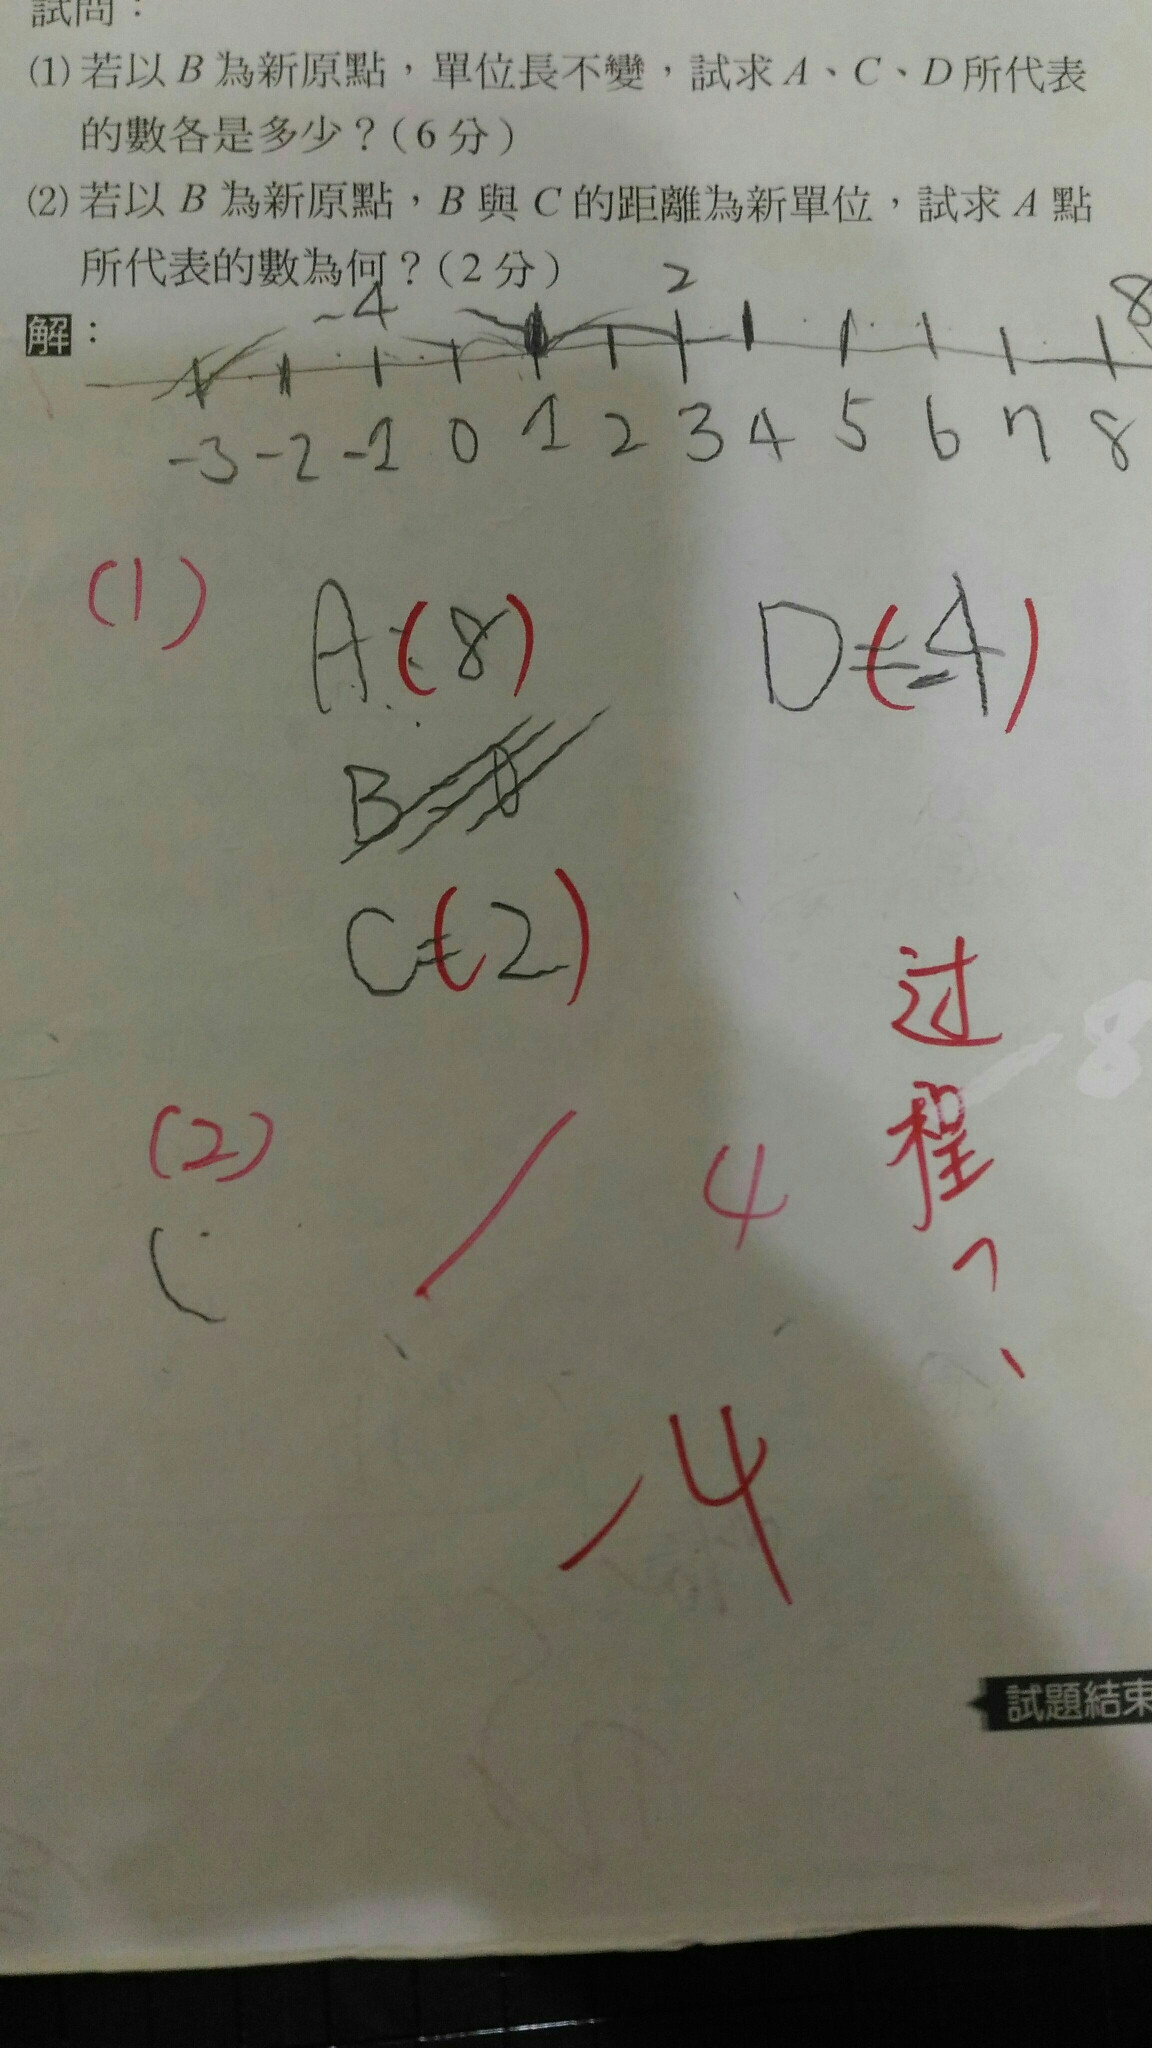 試問：
(1) 若以 B 為新原點，單位長不變，試求 A、C、D 所代表
的數各是多少？(6 分)
(2) 若以 B 為新原點，B 與 C 的距離為新單位，試求 A 點
所代表的數為何？(2 分)
解：
-4 2 8
-3 -2 -1 0 1 2 3 4 5 6 7 8
(1) A=(8) D=(-4)
B=0
C=(2)
过
程
?
(2) 4
-8
-4
試題結束